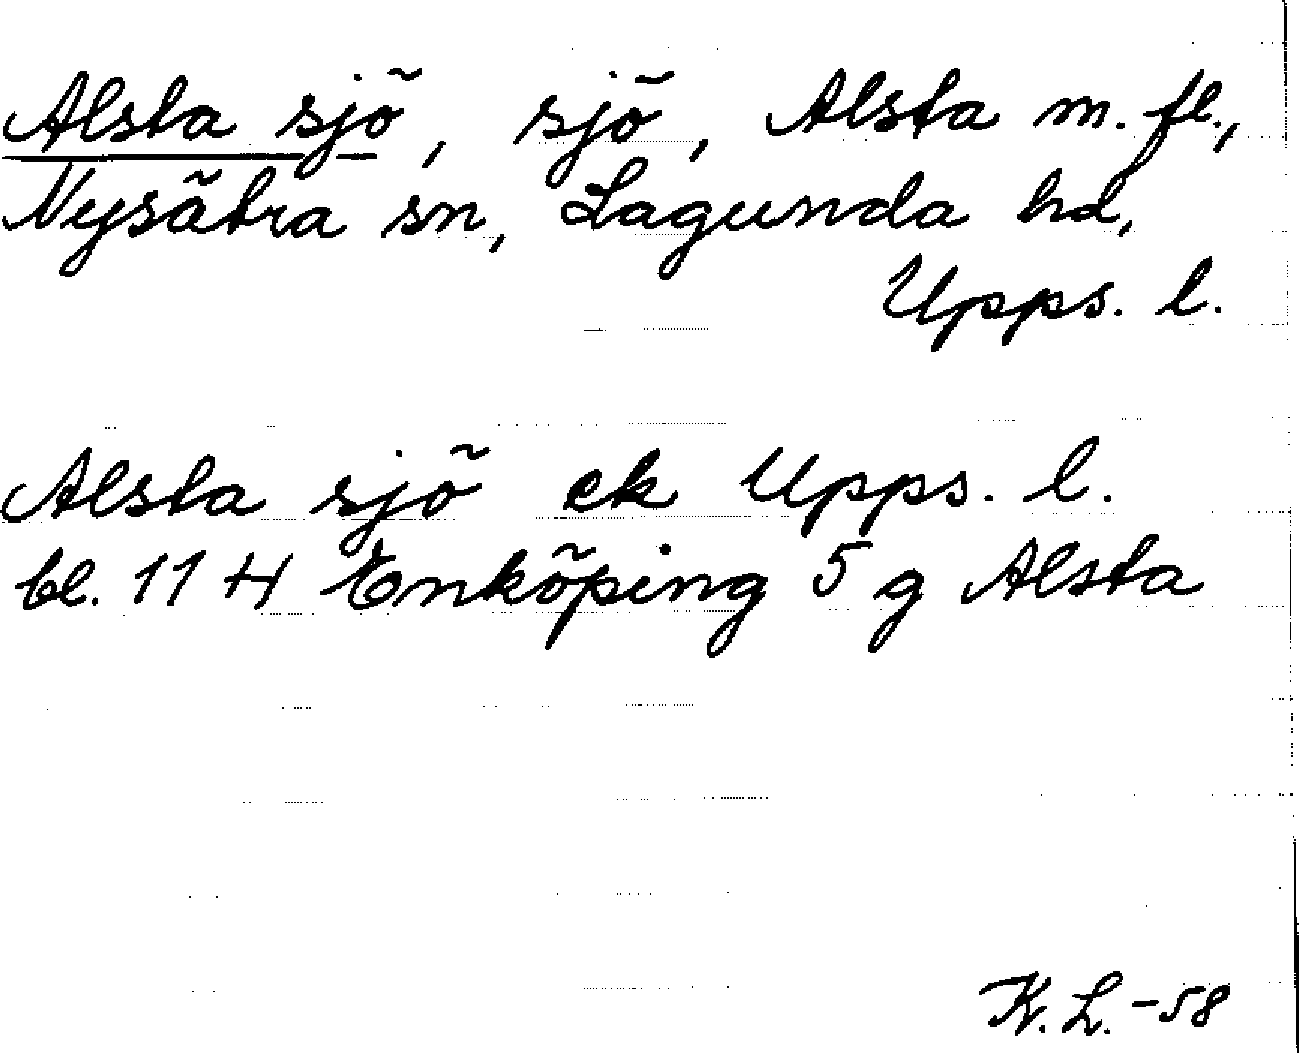 Alsta sjö, sjö, Alsta m. fl.,
Nysätra sn, Lagunda hd,
Upps. l.
Alsta sjö ek Upps. l.
bl. 11 H Enköping 5 g Alsta
K. L. -58